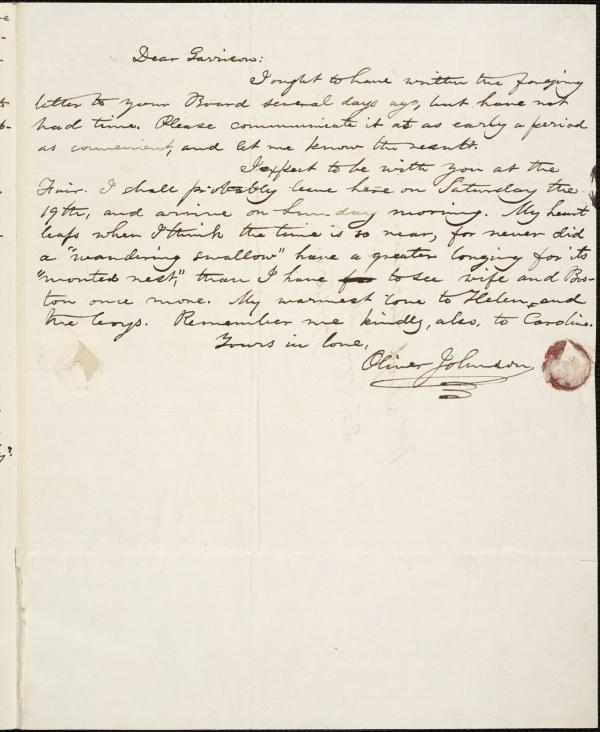 Dear Garrison:
I ought to have written the foregoing
letter to your Board several days ago, but have not
had time. Please communicate it at as early a period
as convenient, and let me know the result.
I expect to be with you at the
Fair. I shall probably leave here on Saturday the
19th, and arrive on Sunday morning. My heart
leaps when I think the time is so near, for never did
a "wandering swallow" have a greater longing for its
"wonted nest," than I have to see wife and Bos-
ton once more. My warmest love to Helen, and
the boys. Remember me kindly, also, to Caroline.
Yours in love,
Oliver Johnson